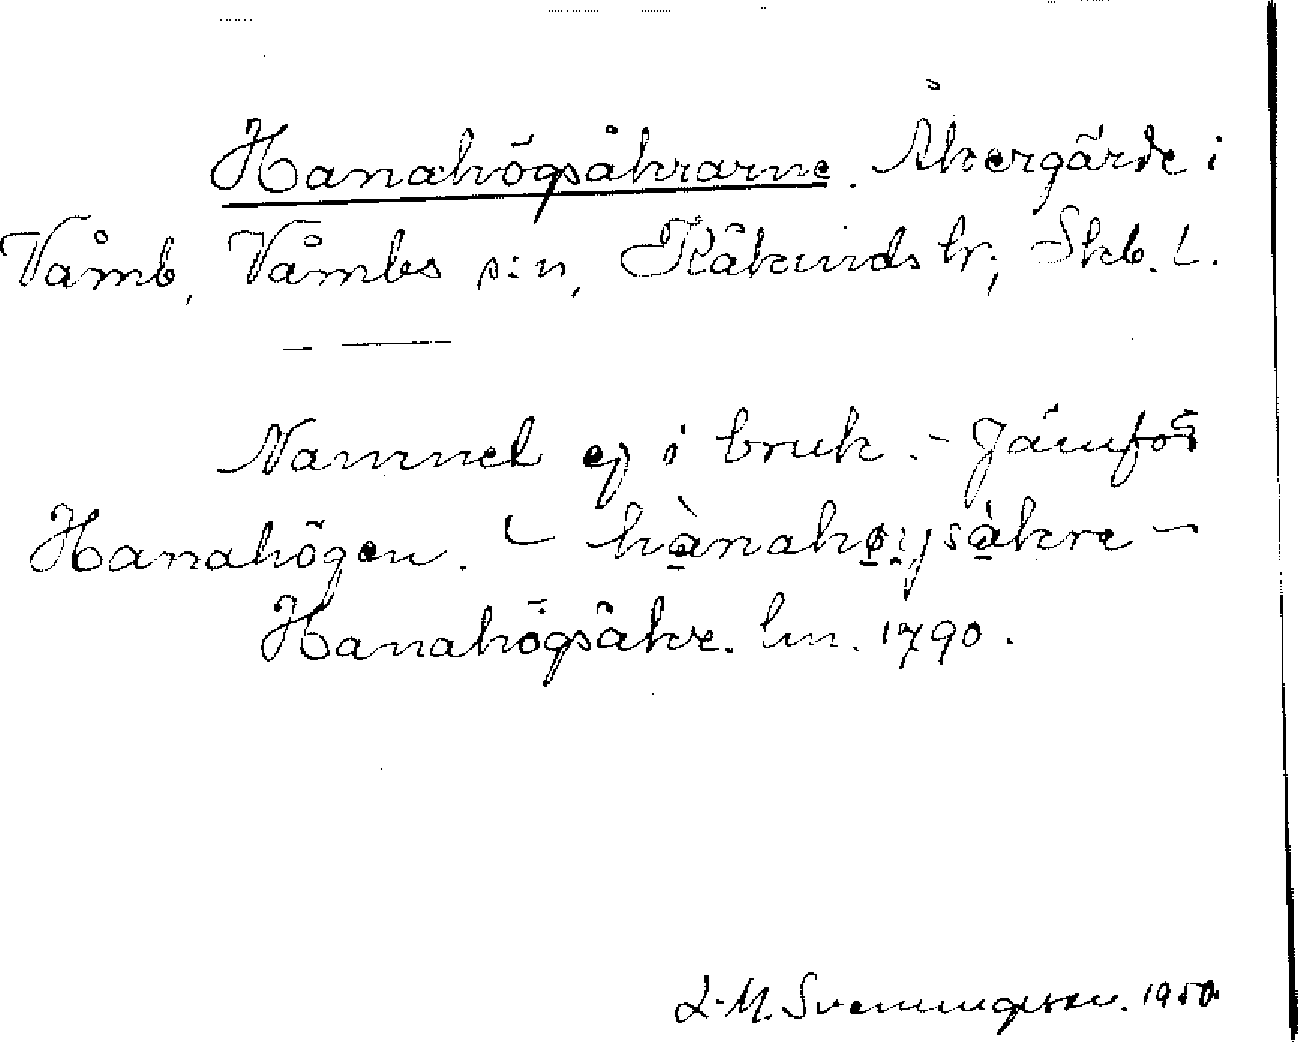 Hanahögsåkrarne. Åkergärde i
Våmb, Våmbs s:n, Kåkinds hr, Skb. L.
Namnet ej i bruk. - Jämför
Hanahögen. - hànahøysàkre -
Hanahögsåkr. lm. 1790.
L-M. Svenungsson. 1950.